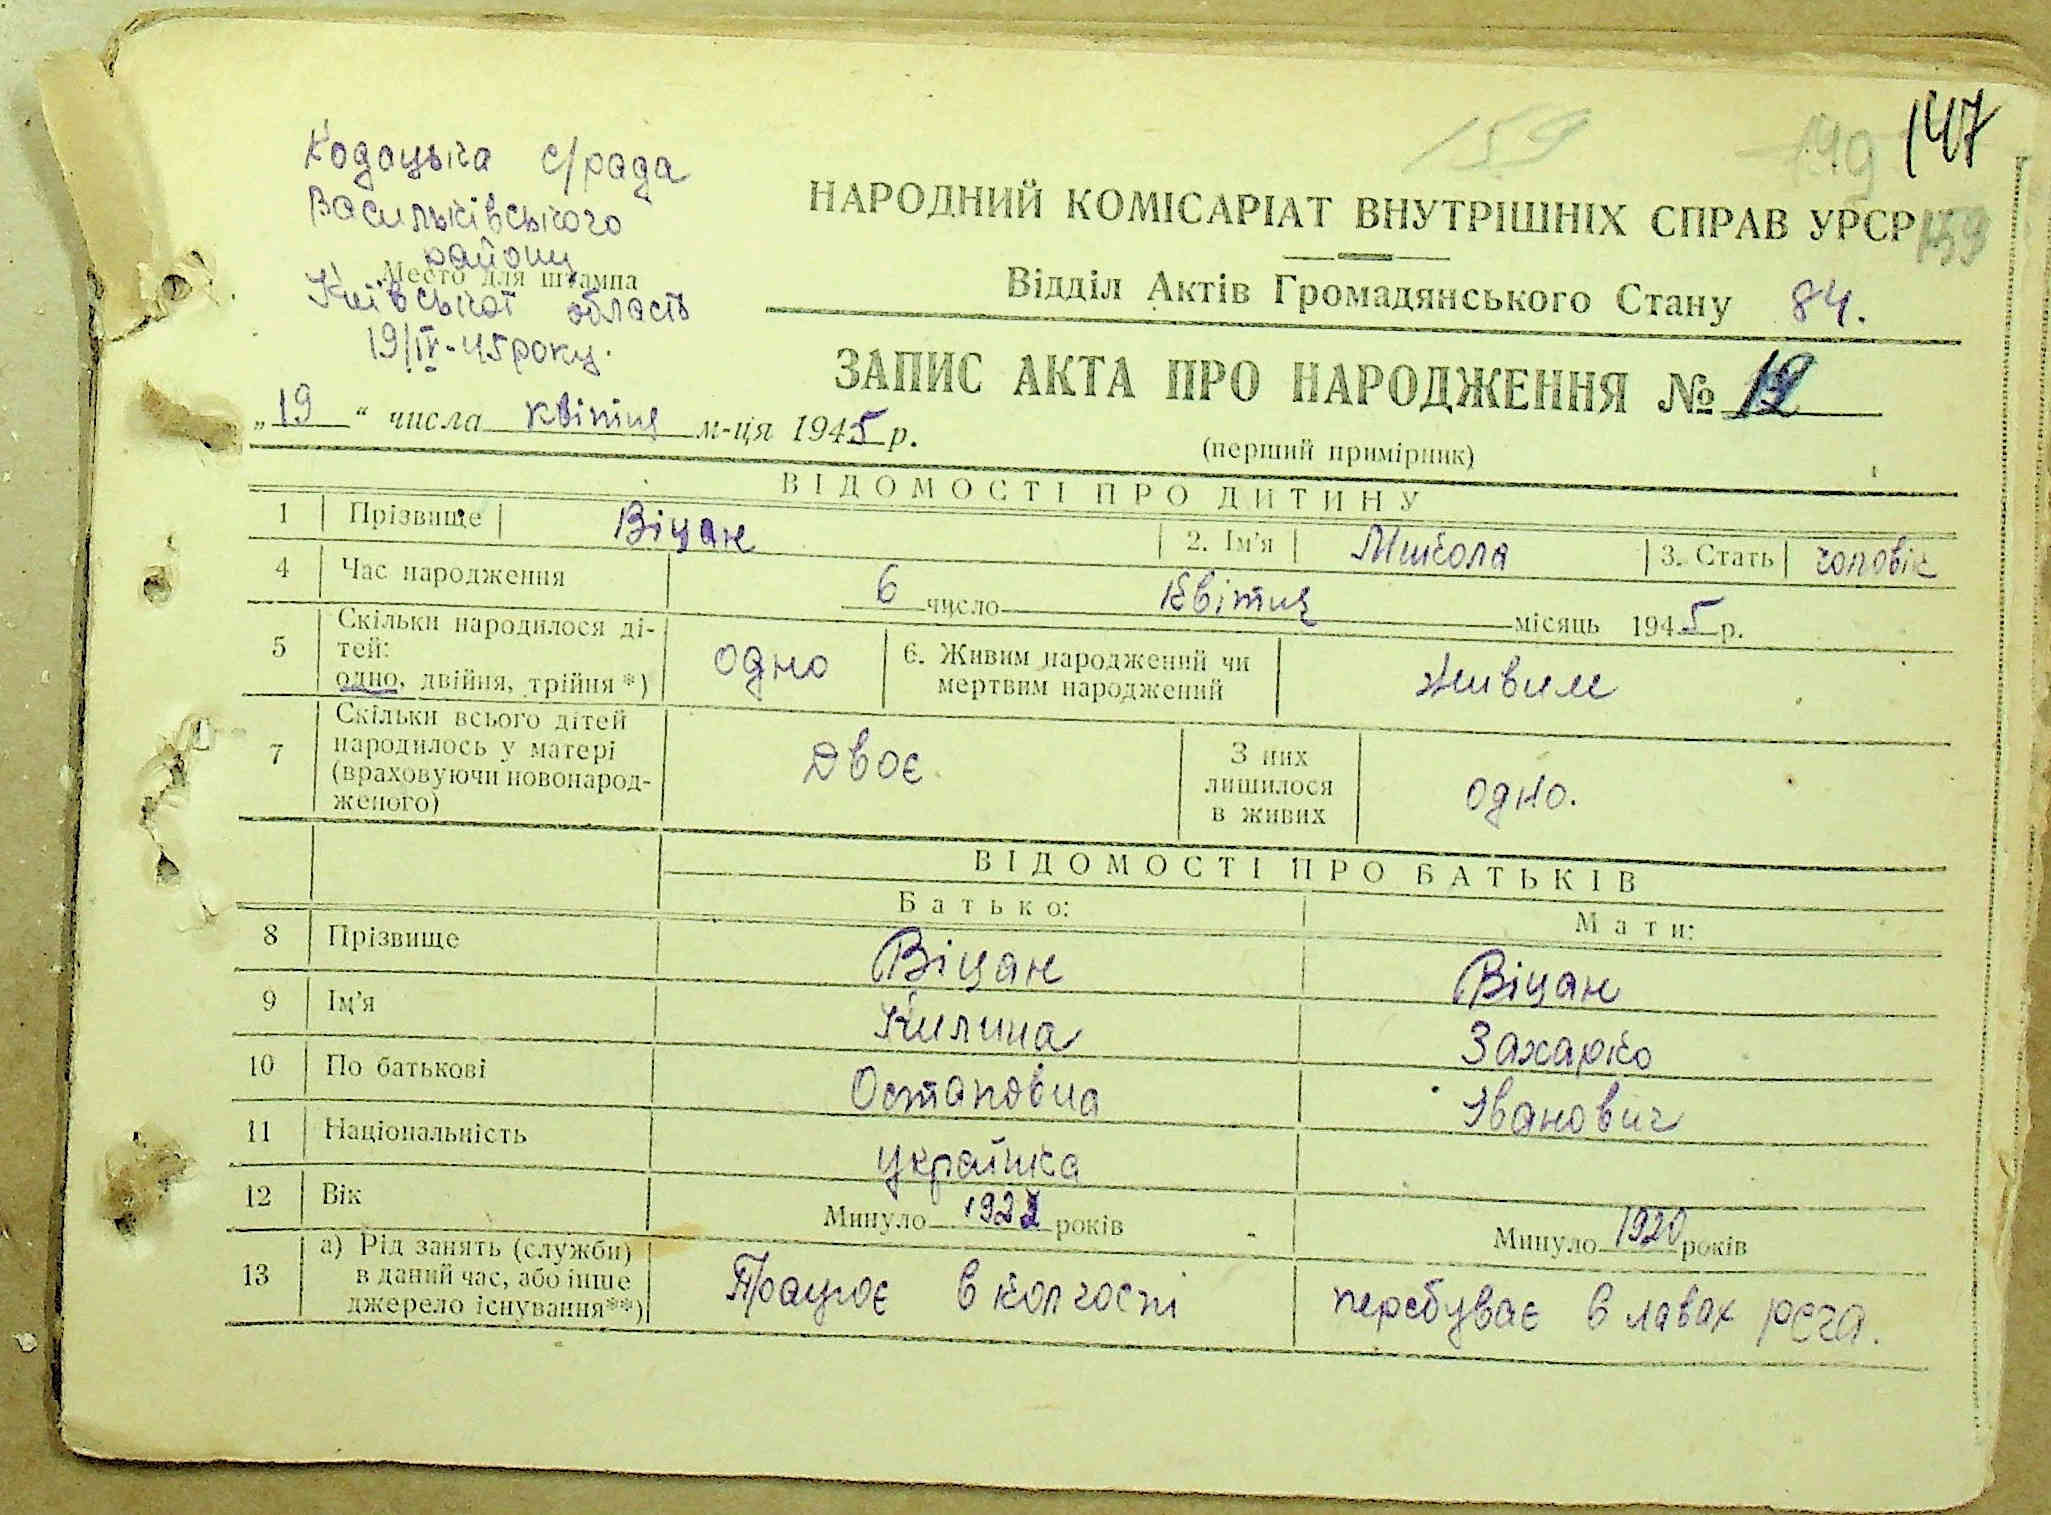 147
159
149
159
Кодацька с/рада
Васильківського
району
Место для штампа
Київської область
19/IV-45 року.
НАРОДНИЙ КОМІСАРІАТ ВНУТРІШНІХ СПРАВ УРСР
Відділ Актів Громадянського Стану 84.
ЗАПИС АКТА ПРО НАРОДЖЕННЯ № 12
„19“ числа квітня м-ця 1945 р.
(перший примірник)
ВІДОМОСТІ ПРО ДИТИНУ
1 Прізвище Віцан 2. Ім'я Микола 3. Стать чоловік
4 Час народження 6 число Квітня місяць 1945 р.
5 Скільки народилося ді-
тей:
одно, двійня, трійня*) одно 6. Живим народжений чи
мертвим народжений живим
7 Скільки всього дітей
народилось у матері
(враховуючи новонарод-
женого) Двоє З них
лишилося
в живих одно.
ВІДОМОСТІ ПРО БАТЬКІВ
Батько: Мати:
8 Прізвище Віцан Віцан
9 Ім'я Килина Захарко
10 По батькові Остаповна Іванович
11 Національність українка
12 Вік Минуло 1922 років Минуло 1920 років
13 а) Рід занять (служби)
в даний час, або інше
джерело існування**) Працює в колгоспі перебуває в лавах рсча.